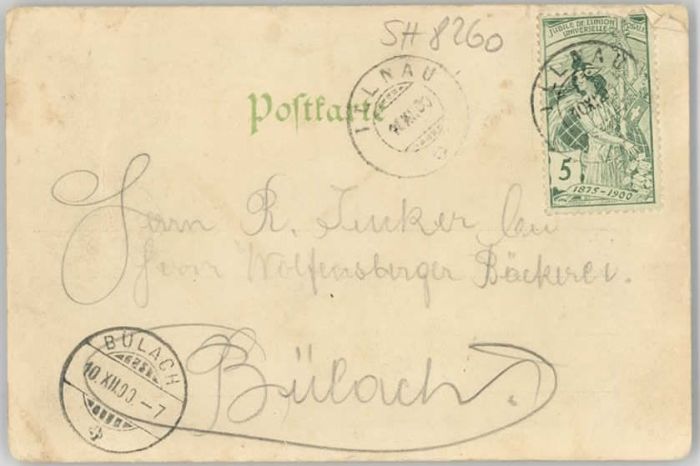 SH 8260
JUBILÉ DE L'UNION
UNIVERSELLE
5
1875-1900
ILLNAU
10.XII.00
ILLNAU
10.XII.00
Postkarte
Herrn R. Junker bei
Herrn Wolfensberger Bäckerei.
Bülach.
BÜLACH
10.XII.00-7